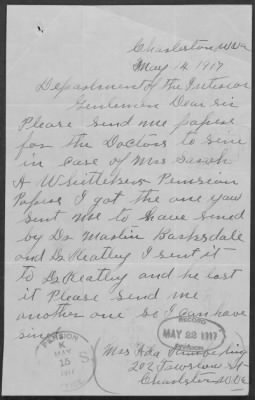 Charleston W Va
May 14, 1917
Department of the Interior
Gentlemen Dear Sir
Please send me papers
for the Doctors to sine
in case of Mrs Sarah
A Whitteker Pension
Papers I got the one you
sent me to have sined
by Dr Martin Barksdale
and Dr Keatley I sent it
to Dr Keatley and he lost
it Please send me
another one so I can have
sined
PENSION
K
MAY
15
S.
RECORD
MAY 22 1917
DIVISION
Mrs Ada
202 St
Charleston W Va